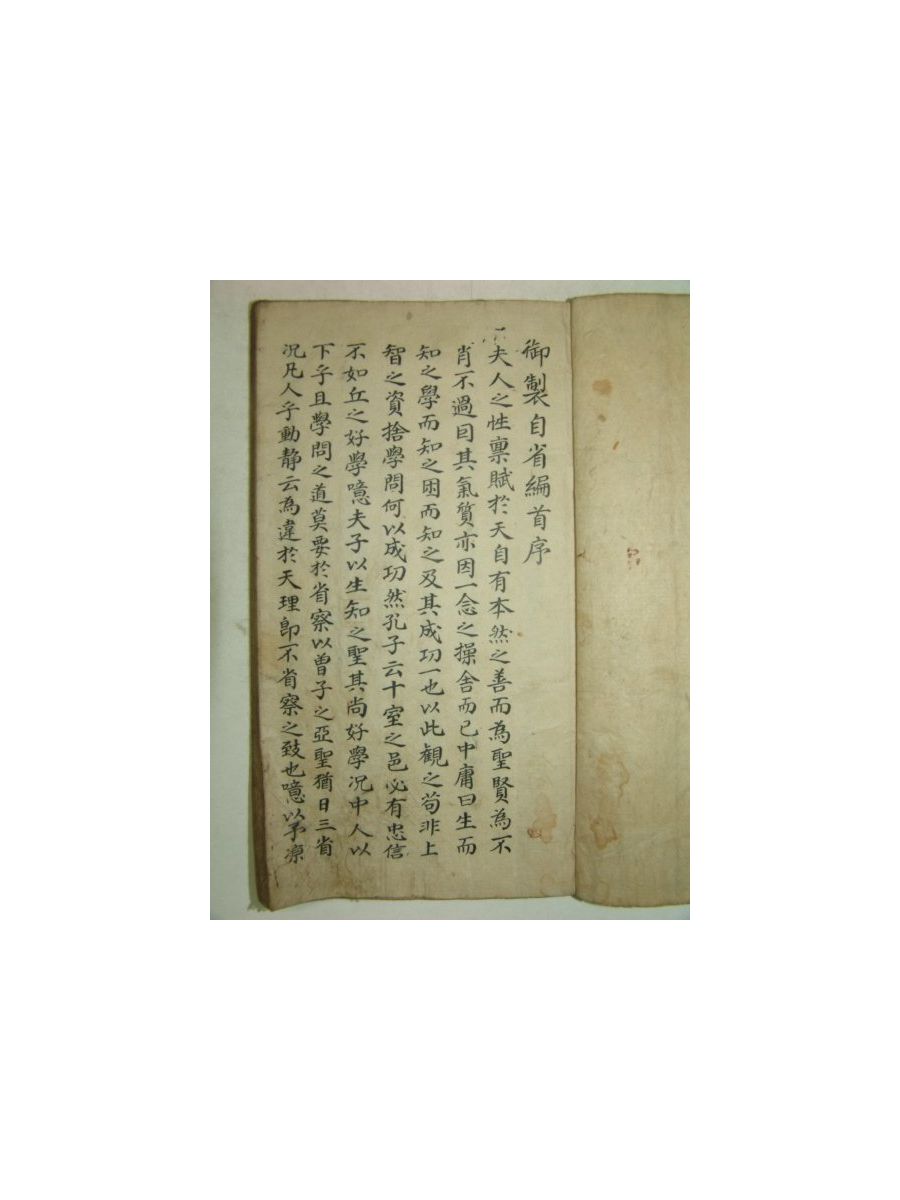 御製自省編首序
夫人之性禀賦於天自有本然之善而為聖賢為不
肖不過囙其氣質亦因一念之操舍而已中庸曰生而
知之學而知之困而知之及其成功一也以此觀之苟非上
智之資捨學問何以成功然孔子云十室之邑必有忠信
不如丘之好學噫夫子以生知之聖其尚好學况中人以
下乎且學問之道莫要於省察以曾子之亞聖猶日三省
况凡人乎動静云為違於天理卽不省察之致也噫以予凉